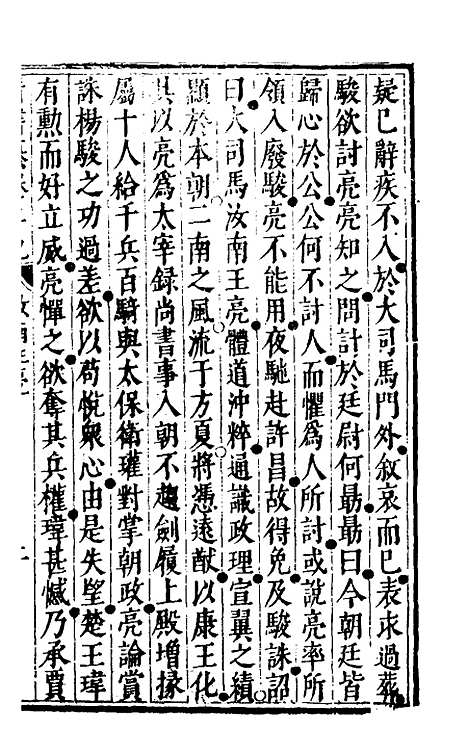 疑已辭疾不入於大司馬門外敘哀而已表求過葬
駿欲討亮亮知之問計於廷尉何勗勗曰今朝廷皆
歸心於公公何不討人而懼爲人所討或說亮率所
領入廢駿亮不能用夜馳赴許昌故得免及駿誅詔
曰大司馬汝南王亮體道沖粹通識政理宣翼之績
顯於本朝二南之風流于方夏將憑遠猷以康王化
其以亮爲太宰録尚書事入朝不趨劍履上殿增掾
屬十人給千兵百騎與太保衛瓘對掌朝政亮論賞
誅楊駿之功過差欲以苟悅衆心由是失望楚王瑋
有勳而好立威亮憚之欲奪其兵權瑋甚憾乃承賈